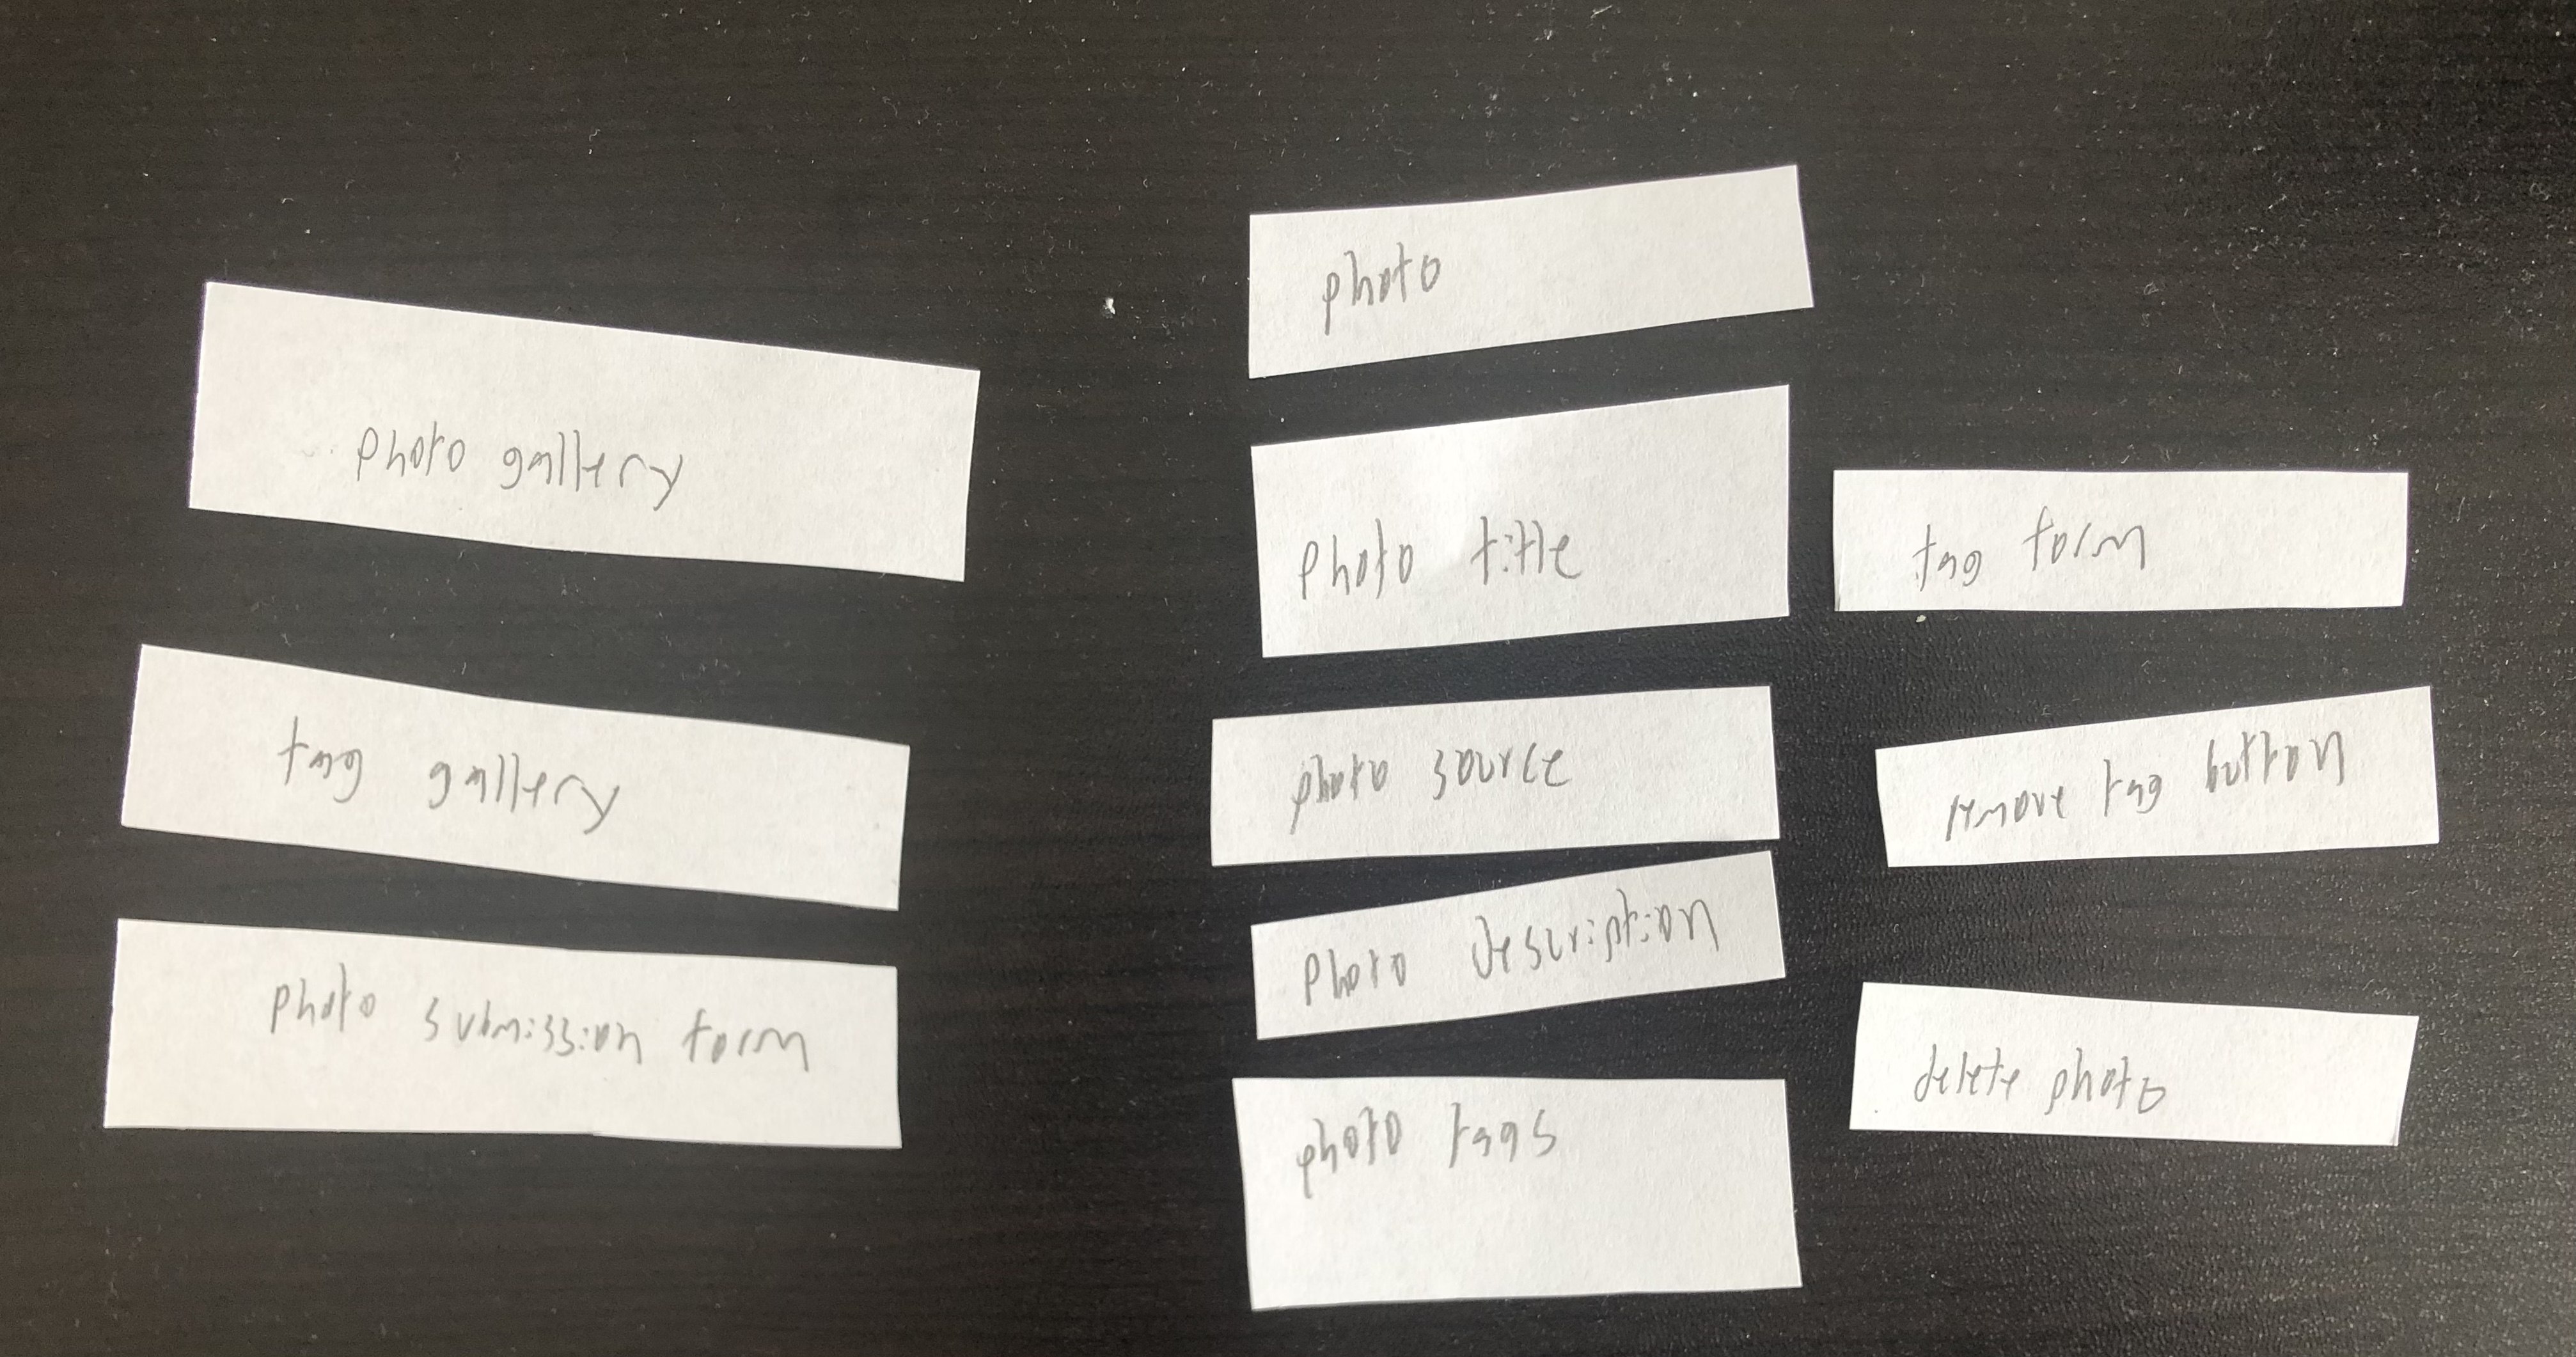 photo gallery
tag gallery
photo submission form
photo
photo title
photo source
photo description
photo tags
tag form
remove tag button
delete photo